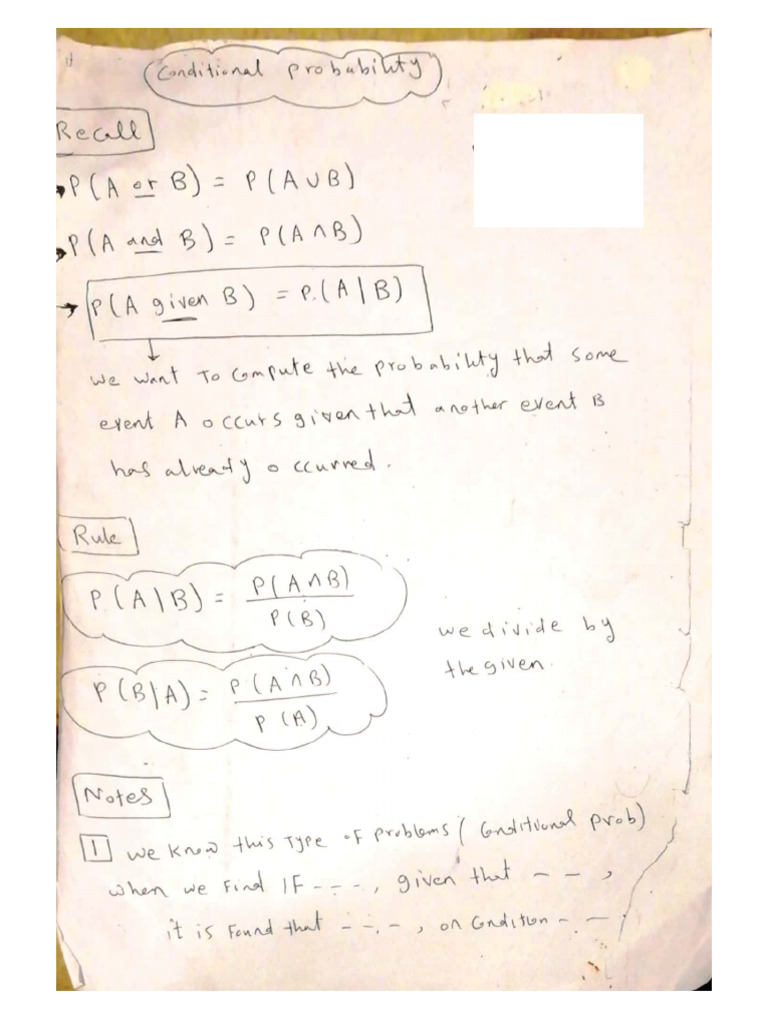 Conditional probability
Recall
P(A or B) = P(A ∪ B)
P(A and B) = P(A ∩ B)
→ P(A given B) = P.(A | B)
we want To compute the probability that some
event A occurs given that another event B
has already occurred.
Rule
P(A | B) = P(A ∩ B) / P(B)
we divide by
the given.
P(B | A) = P(A ∩ B) / P(A)
Notes
1 we know this Type of problems (Conditional prob)
when we Find IF - - -, given that - - ,
it is Found that - - . - , on Condition - . -